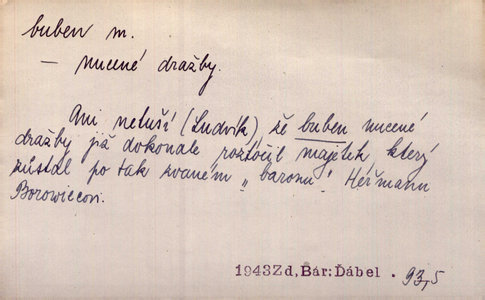 buben m.
— nucené dražby.
Ani netuší (Ludvík), že buben nucené
dražby již dokonale roztočil majetek, který
zůstal po tak zvaném „baronu“ Heřmanu
Borowiecovi.
1943Zd,Bár:Ďábel . 93,5